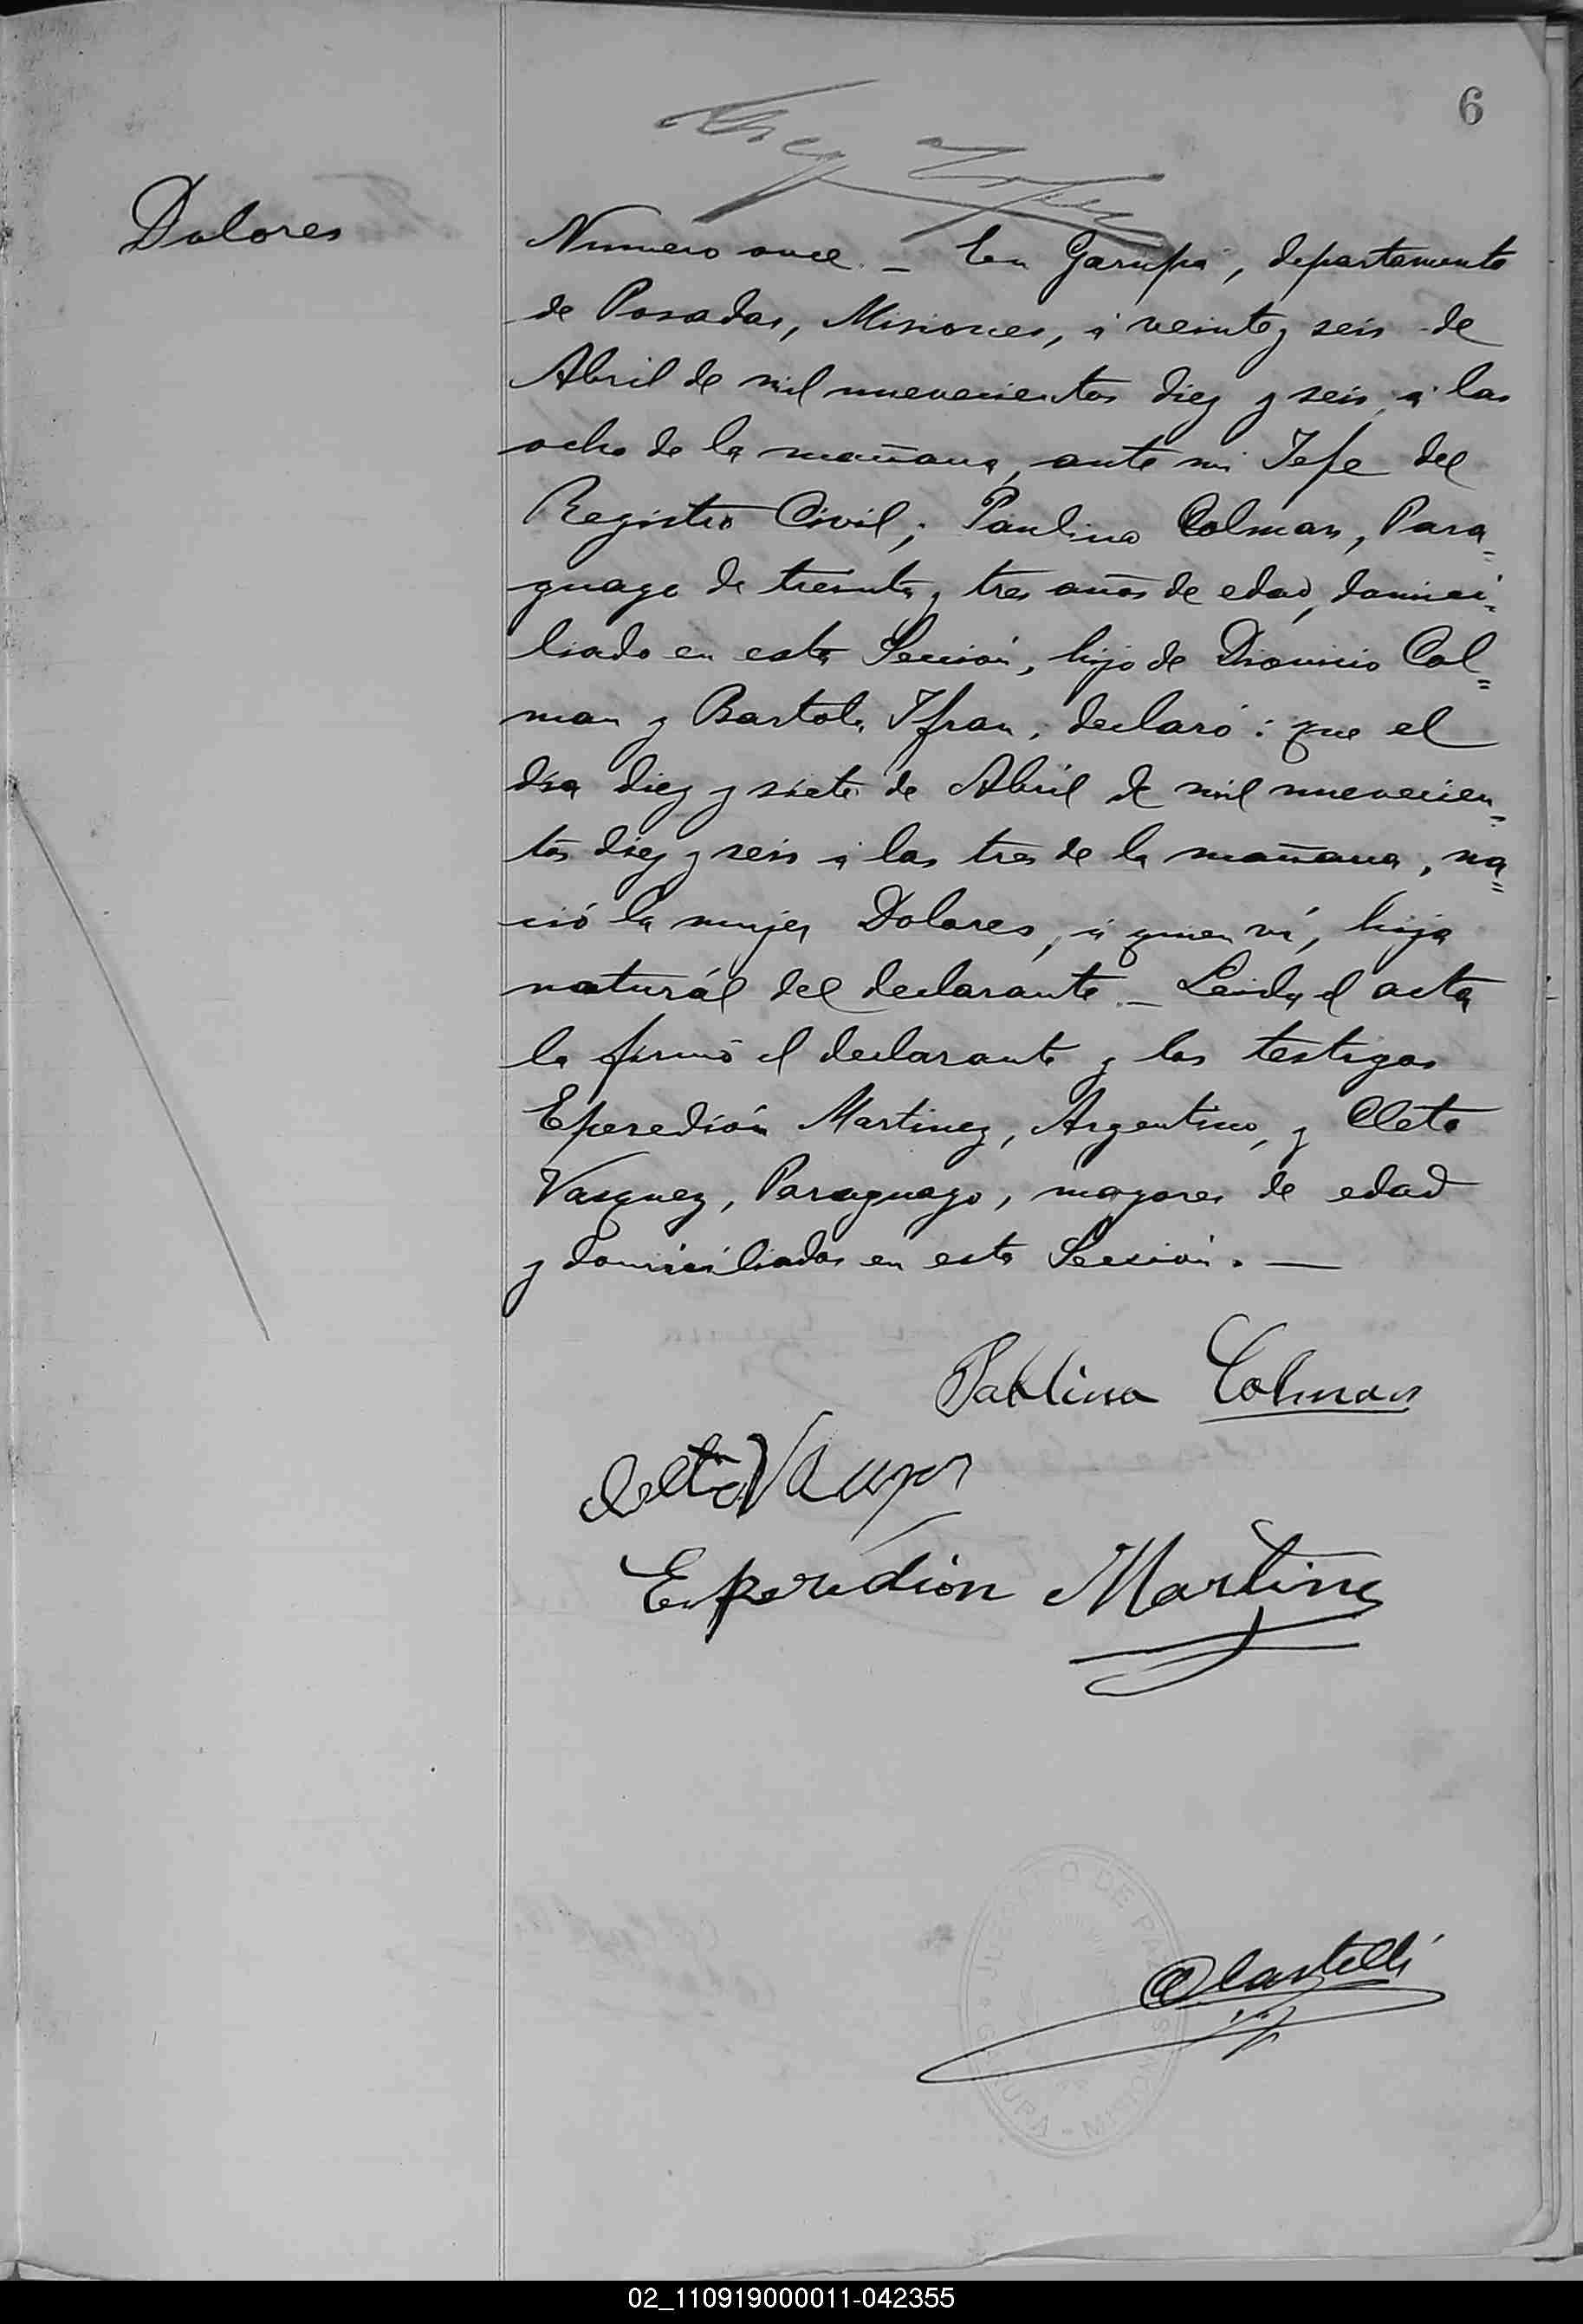 6
Dolores
Numero once. _ En Garupá, departamento
de Posadas, Misiones, á veinte y seis de
Abril de mil nuevecientos diez y seis, á las
ocho de la mañana, ante mi Jefe del
Registro Civil; Paulino Colman, Para=
guayo de treinta y tres años de edad, domici=
liado en esta Sección, hijo de Dionicio Col=
man y Bartola Ifran, declaró: que el
dia diez y siete de Abril de mil nuevecien=
tos diez y seis á las tres de la mañana, na=
ció la mujer Dolores, á quien ví, hija
naturál del declarante. _ Leida el acta
la firmó el declarante y los testigos
Eperedión Martinez, Argentino, y Cleto
Vasquez, Paraguayo, mayores de edad
y domiciliados en esta Sección. —
Pablino Colman
Cleto
Esperidion Martinez
Castelli
JUZGADO DE PAZ
GARUPÁ - MISIONES
02_110919000011-042355